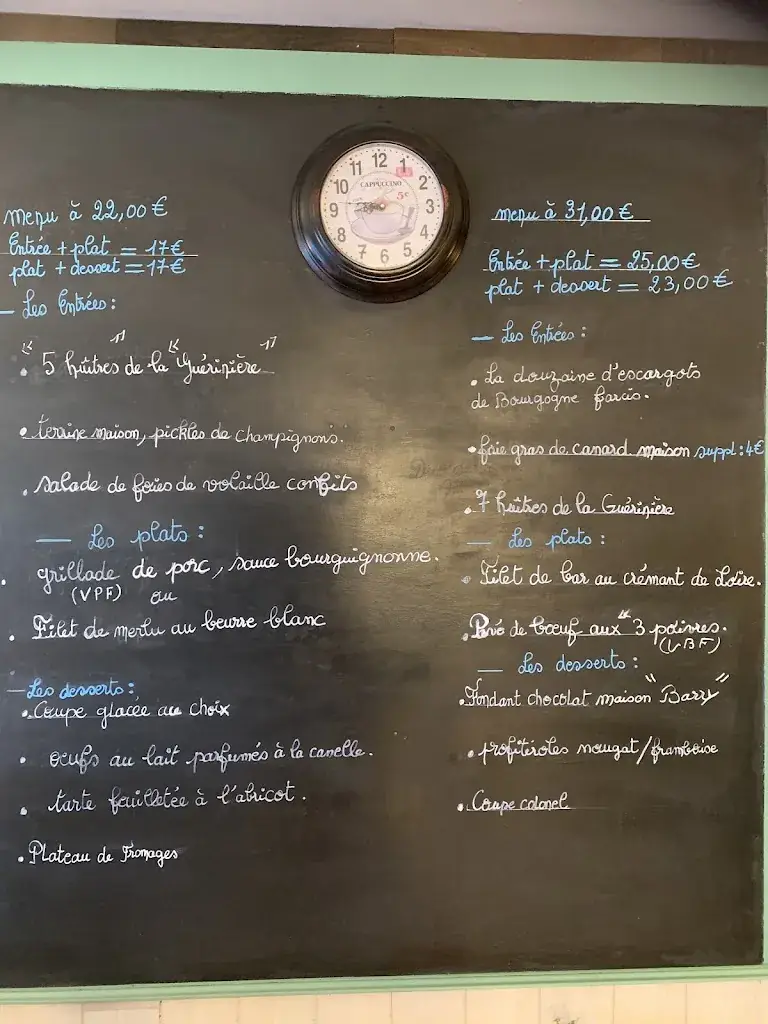 menu à 22,00 €
Entrée + plat = 17 €
plat + dessert = 17 €
— Les Entrées :
• "5 huîtres" de la "Guérinière"
• terrine maison, pickles de champignons.
• salade de foies de volaille confits
— Les plats :
• grillade de porc, sauce bourguignonne.
(VPF) ou
• Filet de merlu au beurre blanc
— Les desserts :
• Coupe glacée au choix
• oeufs au lait parfumés à la canelle.
• tarte feuilletée à l'abricot.
• Plateau de Fromages
12
1
2
3
4
5
6
7
8
9
10
11
CAPPUCCINO
5¢
menu à 31,00 €
Entrée + plat = 25,00 €
plat + dessert = 23,00 €
— Les Entrées :
• La douzaine d'escargots
de Bourgogne farcis.
• foie gras de canard maison suppl : 4€
• 7 huîtres de la Guérinière
— Les plats :
• Filet de bar au crémant de Loire.
• Pavé de boeuf aux "3 poivres.
(VBF)
— Les desserts :
• Fondant chocolat maison "Barry"
• profiteroles nougat/framboise
• Coupe colonel